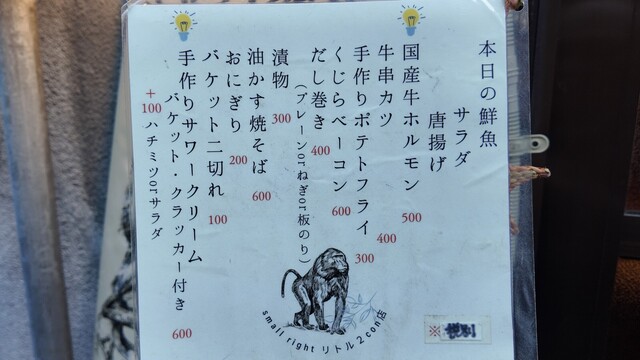 本日の鮮魚
サラダ
唐揚げ
国産牛ホルモン 500
牛串カツ 400
手作りポテトフライ 300
くじらベーコン 600
だし巻き 400
(プレーンorねぎor板のり)
漬物 300
油かす焼そば 600
おにぎり 200
バケット二切れ 100
手作りサワークリーム
バケット・クラッカー付き 600
+100 ハチミツorサラダ
small right リトル2con店
※税別